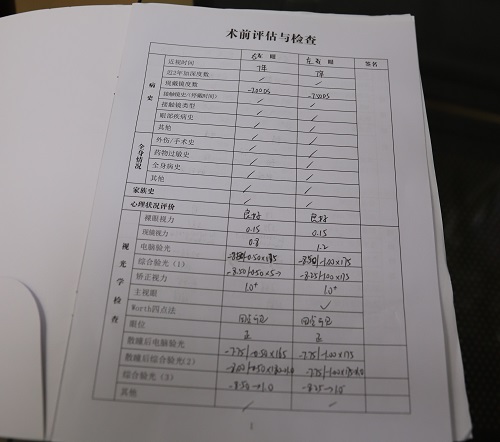 术前评估与检查
右 眼 左 眼 签名
病史
近视时间 7年 7年
近2年加深度数 / /
现戴镜度数 -7.00DS -7.00DS
接触镜史/(停戴时间) / /
接触镜类型 / /
眼部疾病史 / /
其他 / /
全身情况
外伤/手术史 / /
药物过敏史 / /
全身病史 / /
其他 / /
家族史 / /
心理状况评价 良好 良好
视光学检查
裸眼视力 0.15 0.15
现镜视力 0.8 1.2
电脑验光 -0.50×185 -8.50/-1.00×175
综合验光(1) -8.50/-0.50×5 -8.25/-1.00×175
矫正视力 1.0⁺ 1.0⁺
主视眼 ✓
Worth四点法
眼位 正 正
散瞳后电脑验光 -7.75/-0.50×185 -7.75/-1.00×175
散瞳后综合验光(2) -7.75/-1.00×175
综合验光(3) -8.50→1.0 -8.25→1.0
其他 / /
1